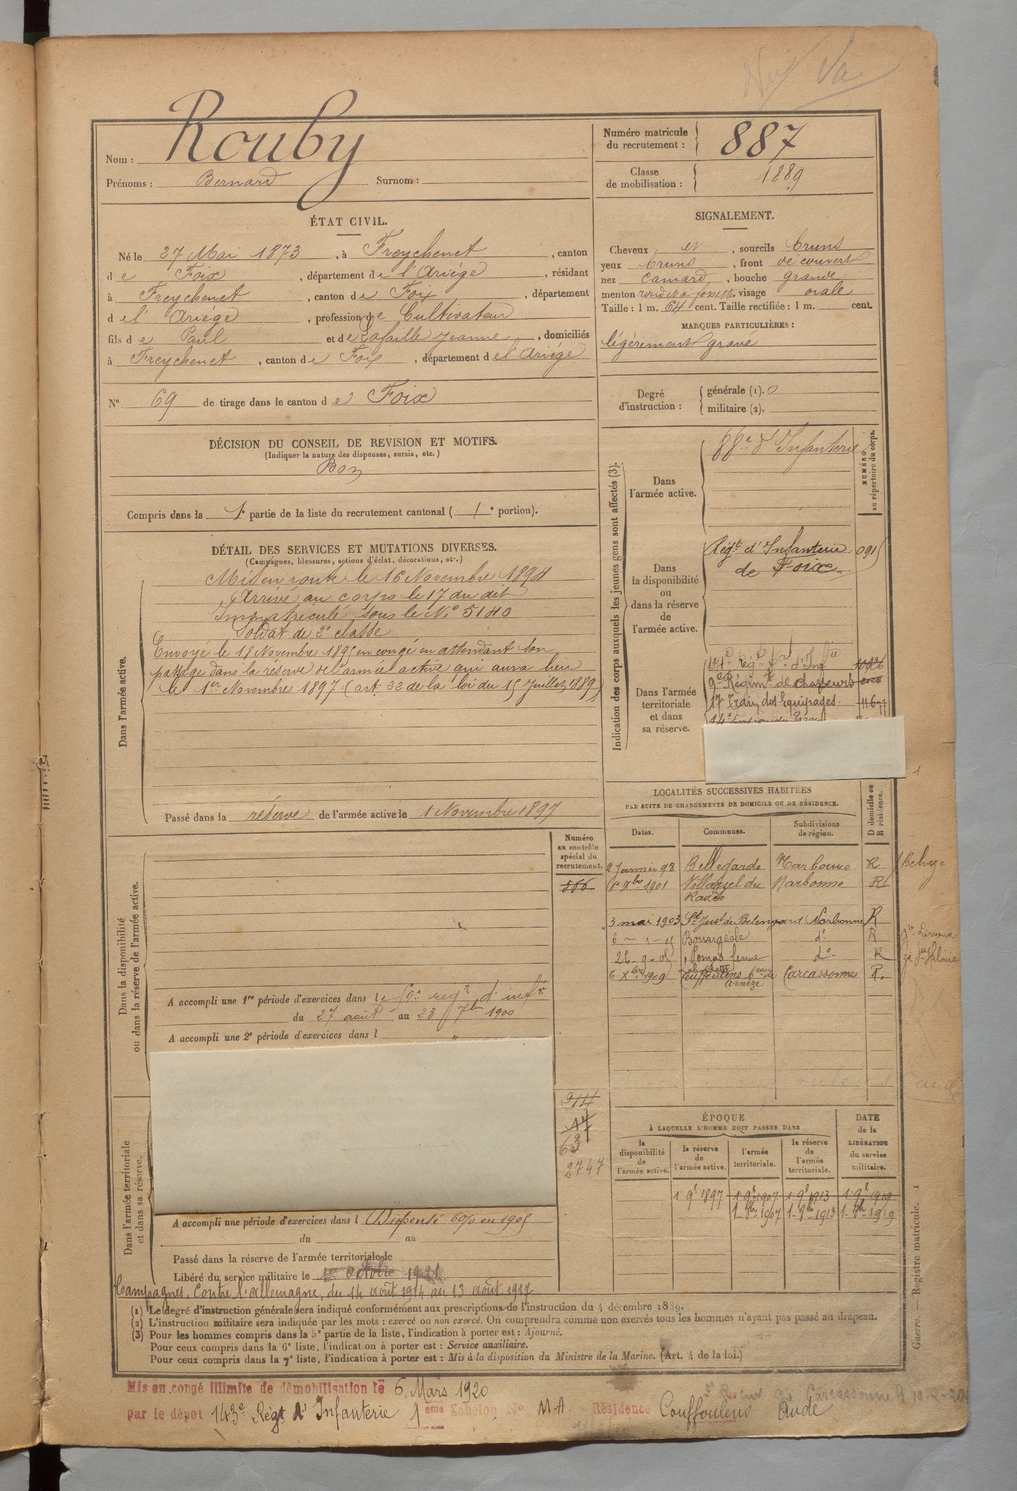 Rouby
Nom :
Prénoms : Bernard Surnom :
Numéro matricule du recrutement : 887
Classe de mobilisation : 1889
ÉTAT CIVIL.
Né le 27 Mai 1873, à Freychenet, canton
de Foix, département de l'Ariége, résidant
à Freychenet, canton de Foix, département
de l'Ariége, profession de Cultivateur
fils de Paul et de Lafaille Jeanne, domiciliés
à Freychenet, canton de Foix, département de l'Ariége
N° 69 de tirage dans le canton de Foix
SIGNALEMENT.
Cheveux et, sourcils bruns
yeux bruns, front découvert
nez camard, bouche grande
menton rond et à fossette, visage ovale
Taille : 1 m. 64 cent. Taille rectifiée : 1 m. cent.
MARQUES PARTICULIÈRES :
légèrement gravé
Degré d'instruction : générale (1). 0
militaire (2).
DÉCISION DU CONSEIL DE REVISION ET MOTIFS.
(Indiquer la nature des dispenses, sursis, etc.)
Bon
Compris dans la 1e partie de la liste du recrutement cantonal ( 1e portion).
Indication des corps auxquels les jeunes gens sont affectés (3).
NUMÉRO au répertoire du corps.
Dans l'armée active.
88e d'Infanterie
Dans la disponibilité ou dans la réserve de l'armée active.
Régt d'Infanterie de Foix 091
Dans l'armée territoriale et dans sa réserve.
9e Régimt de chasseurs
17e Train des Equipages
DÉTAIL DES SERVICES ET MUTATIONS DIVERSES.
(Campagnes, blessures, actions d'éclat, décorations, etc.)
Dans l'armée active.
Mis en route le 16 Novembre 1894
Arrivé au corps le 17 du dit
Immatriculé sous le N° 5140
Soldat de 2e classe
Envoyé le 18 Novembre 1895 en congé en attendant son
passage dans la réserve de l'armée active qui aura lieu
le 1er Novembre 1897 (art. 33 de la loi du 15 Juillet 1889)
Passé dans la réserve de l'armée active le 1 Novembre 1897
Numéro au contrôle spécial du recrutement.
LOCALITÉS SUCCESSIVES HABITÉES
PAR SUITE DE CHANGEMENTS DE DOMICILE OU DE RÉSIDENCE.
Dates. Communes. Subdivisions de région. D domicile ou R résidence.
2 Janvier 98 Bellegarde Narbonne R
Xbre 1901 Villarzel du Razès Narbonne R
3 mai 1903 St Just de Bélengard Narbonne R
Bourigeole do R
do R
6 Xbre 1909 Carcassonne R.
Dans la disponibilité ou dans la réserve de l'armée active.
A accompli une 1re période d'exercices dans le régt d'inft
du 27 août au 23 7bre 1900
A accompli une 2e période d'exercices dans l "
314
17
63
2747
Dans l'armée territoriale et dans sa réserve.
A accompli une période d'exercices dans l Dispensé en 1908
du au
Passé dans la réserve de l'armée territoriale le
Libéré du service militaire le 1er Octobre
Campagnes, Contre l'Allemagne, du 14 août 1914 au 13 août 1917
ÉPOQUE
À LAQUELLE L'HOMME DOIT PASSER DANS
la disponibilité de l'armée active. la réserve de l'armée active. l'armée territoriale. la réserve de l'armée territoriale.
DATE de la LIBÉRATION du service militaire.
1 9e 1897 1 9e 1907 1 9e 1913 1 9e 1919
(1) Le degré d'instruction générale sera indiqué conformément aux prescriptions de l'instruction du 4 décembre 1889.
(2) L'instruction militaire sera indiquée par les mots : exercé ou non exercé. On comprendra comme non exercés tous les hommes n'ayant pas passé au drapeau.
(3) Pour les hommes compris dans la 5e partie de la liste, l'indication à porter est : Ajourné.
Pour ceux compris dans la 6e liste, l'indication à porter est : Service auxiliaire.
Pour ceux compris dans la 7e liste, l'indication à porter est : Mis à la disposition du Ministre de la Marine. (Art. 4 de la loi.)
Guerre. — Registre matricule. 1
Mis en congé illimité de démobilisation le 6 Mars 1920
par le dépôt 143e Régt d'Infanterie 1ème Echelon No M.A. Résidence Couffoulens Aude